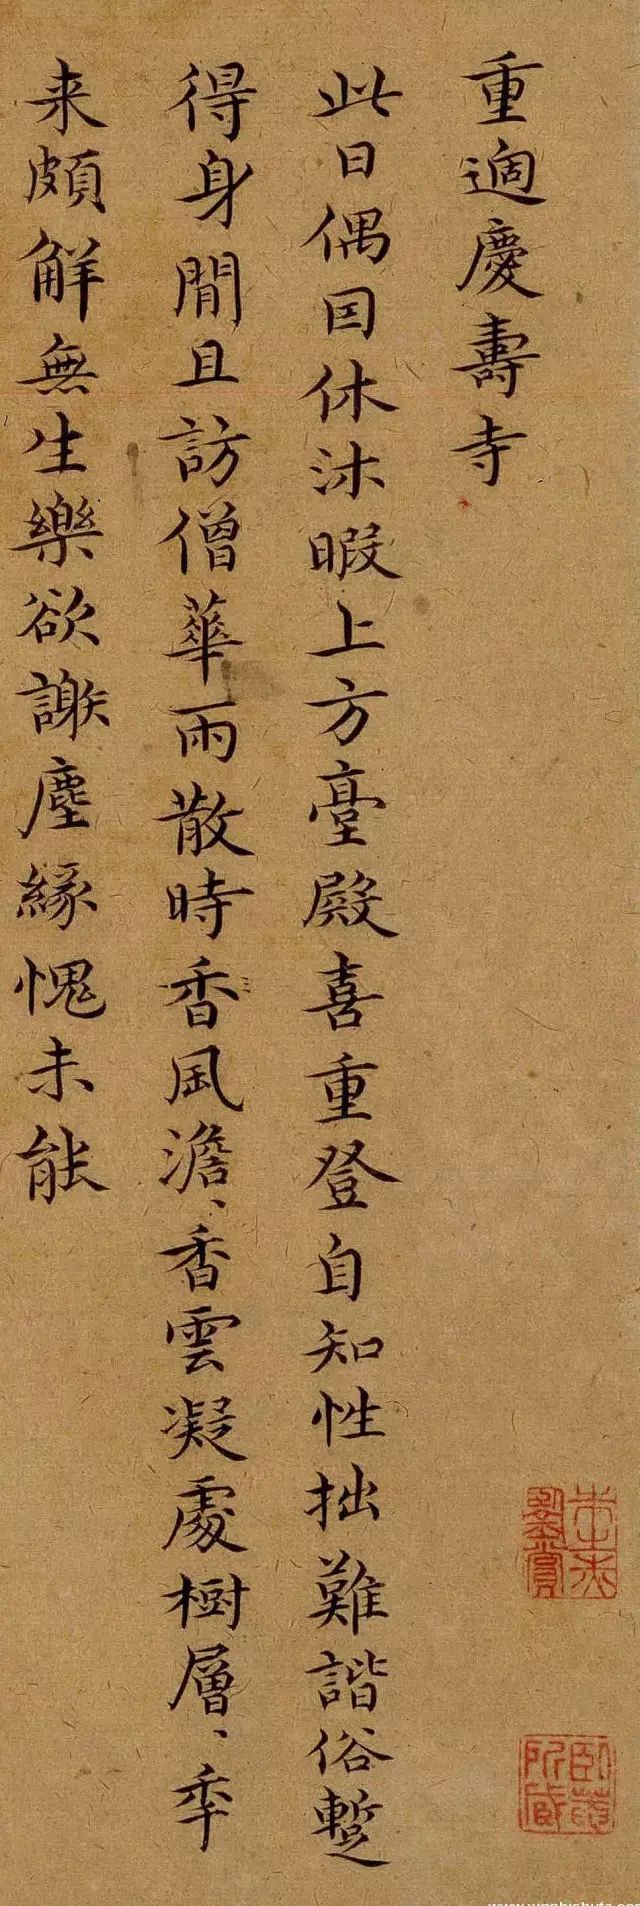 重過慶壽寺
此日偶因休沐暇上方臺殿喜重登自知性拙難諧俗暫
得身閒且訪僧華雨散時香風澹、香雲凝處樹層、年
来頗解無生樂欲謝塵緣愧未能